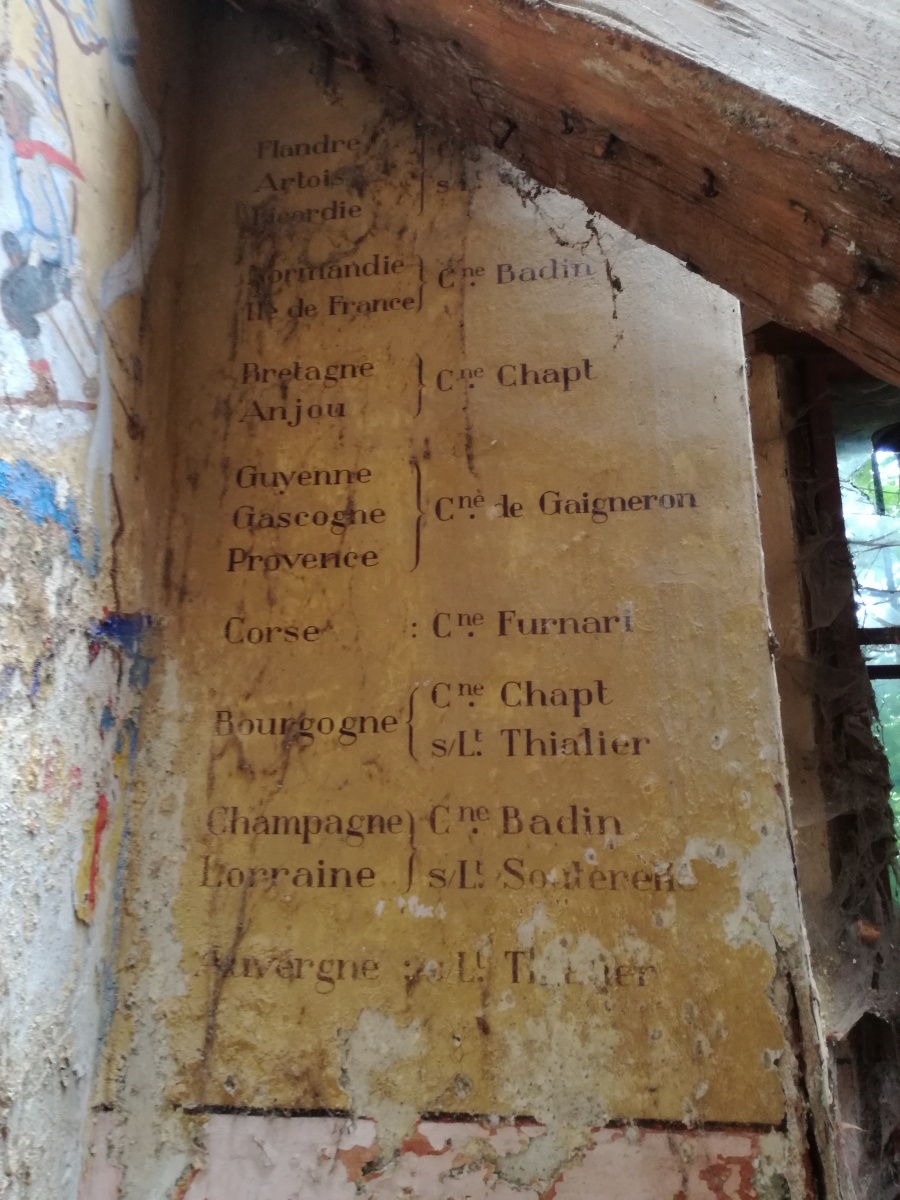 Flandre
Artois
Picardie
Normandie
Ile de France
Cne. Badin
Bretagne
Anjou
Cne. Chapt
Guyenne
Gascogne
Provence
Cne. de Gaigneron
Corse : Cne. Furnari
Bourgogne
Cne. Chapt
s/Lt. Thialier
Champagne
Lorraine
Cne. Badin
s/Lt.
Auvergne : s/Lt.